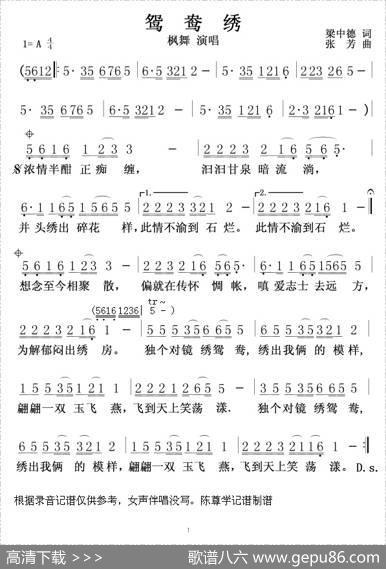 鸳鸯绣
1=A 4/4
枫舞 演唱
梁中德 词
张 芳 曲
(5612 | 5· 35 6765 | 6·5 3212 - | 5·35 1216 | 2·3 2123 5 |
5· 35 6765 | 6·5 3212 - | 5·35 1216 | 2·3 2161 -) |
5616 1233 - | 2223 216 565· |
浓情半酣 正痴 缠, 汩汩甘泉 暗 流 淌,
6·1165 15655 | 2223 321 2 - | 2223 216 1 - |
1. 2.
并 头绣出 碎花 样, 此情不渝到 石 烂。 此情不渝到 石 烂。
5616 1233 - | 2221 2165 - | 3·5 1651565 |
想念至今相聚 散, 偏就在传怀 惆 帐, 嗔 爱志士 去远 方,
(5616 1236 | tr~ 5 -)
2223 216 1 - | 5553 5665 | 6553 5321 2 |
为解郁闷出绣 房。 独个对镜 绣鸳 鸯, 绣出我俩 的 模样,
1553 5121 1 | 2221 2655 - | 5553 5665 |
翩翩一双 玉飞 燕, 飞到天上笑荡 漾. 独个对镜 绣鸳 鸯,
6553 5321 2 | 1553 5121 1 | 2221 2655 - ‖
绣出我俩 的 模样, 翩翩一双 玉飞 燕, 飞到天上笑荡 漾。 D.s.
根据录音记谱仅供参考，女声伴唱没写。陈尊学记谱制谱
1
高清下载 >>>
歌谱八六 www.gepu86.com